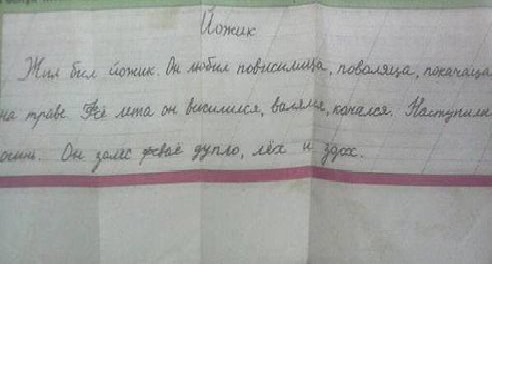 Йожик
Жил был йожик. Он любил повисилица, поволяца, покачаца
на траве. Фсё лета он висилися, валялся, качался. Наступила
осинь. Он залес фсваё дупло, лёх и здох.